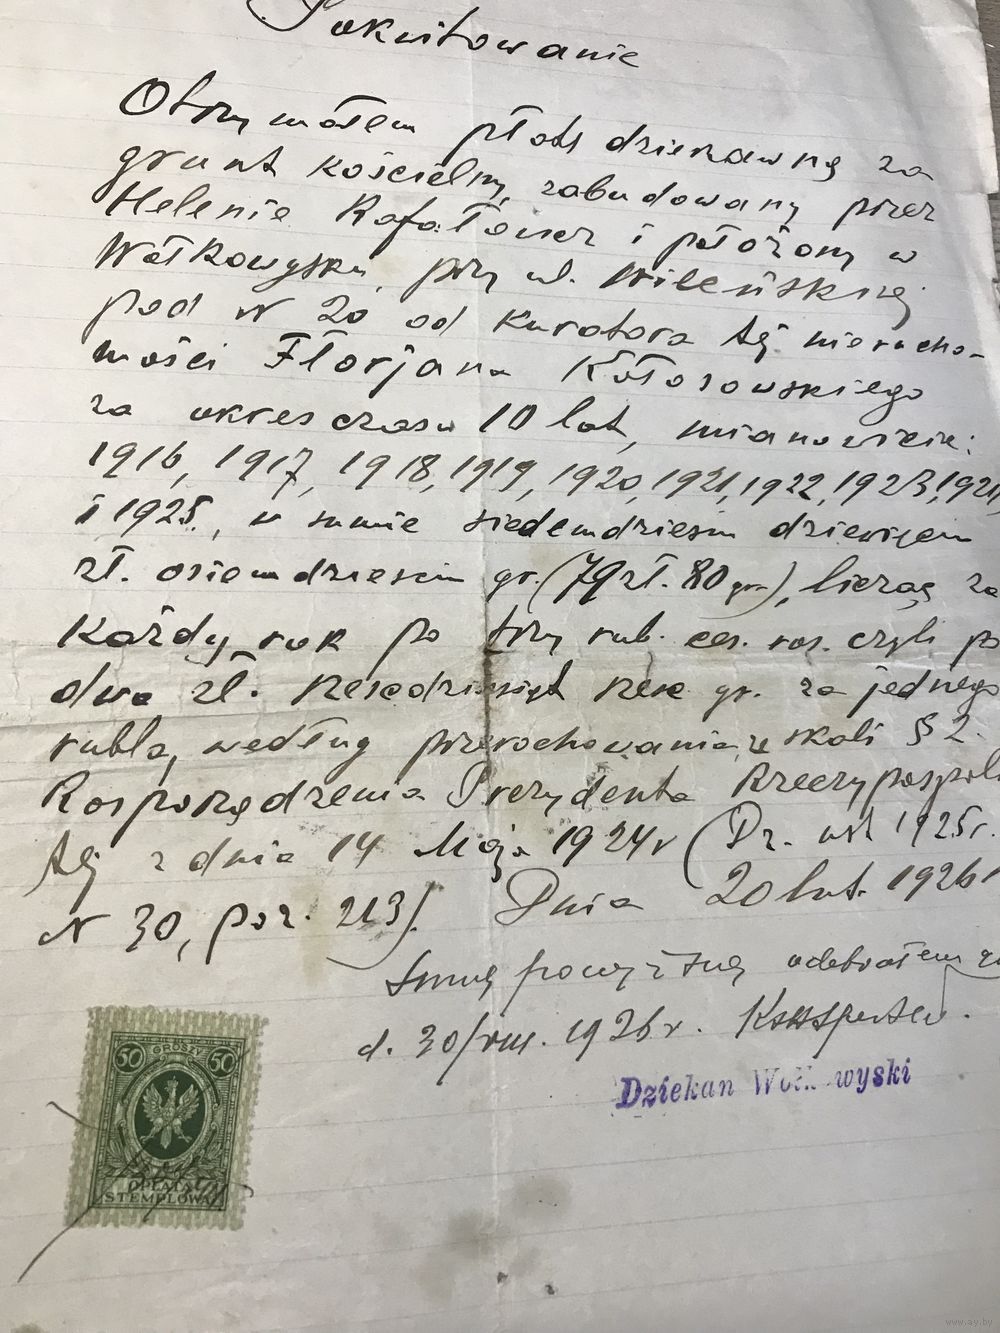 Pokwitowanie
Otrzymałem płatę dzierżawną za
grunt kościelny, zabudowany przez
Helenię Rafałowicz i położony w
Wołkowysku, przy ul. Wileńskiej
pod N 20 od Kuratora tej nierucho-
mości Florjana Kołosowskiego
za okres czasu 10 lat, mianowicie:
1916, 1917, 1918, 1919, 1920, 1921, 1922, 1923, 1924
i 1925, w sumie siedemdziesiąt dziewięć
zł. osiemdziesiąt gr. (79 zł. 80 gr.), licząc za
każdy rok po trzy rub. ros. czyli po
dwa zł. sześćdziesiąt sześć gr. za jednego
rubla, według przerachowania, z skali § 2.
Rozporządzenia Prezydenta Rzeczypospoli-
tej z dnia 14 Maja 1924 r (Dz. ust 1925 r.
N 30, poz. 213). Dnia 20 lut. 1926 r
Sumę powyższą odebrałem
d. 30/VIII. 1926 r.
Dziekan Wołkowyski
50 GROSZY 50
OPŁATA
STEMPLOWA
www.ay.by